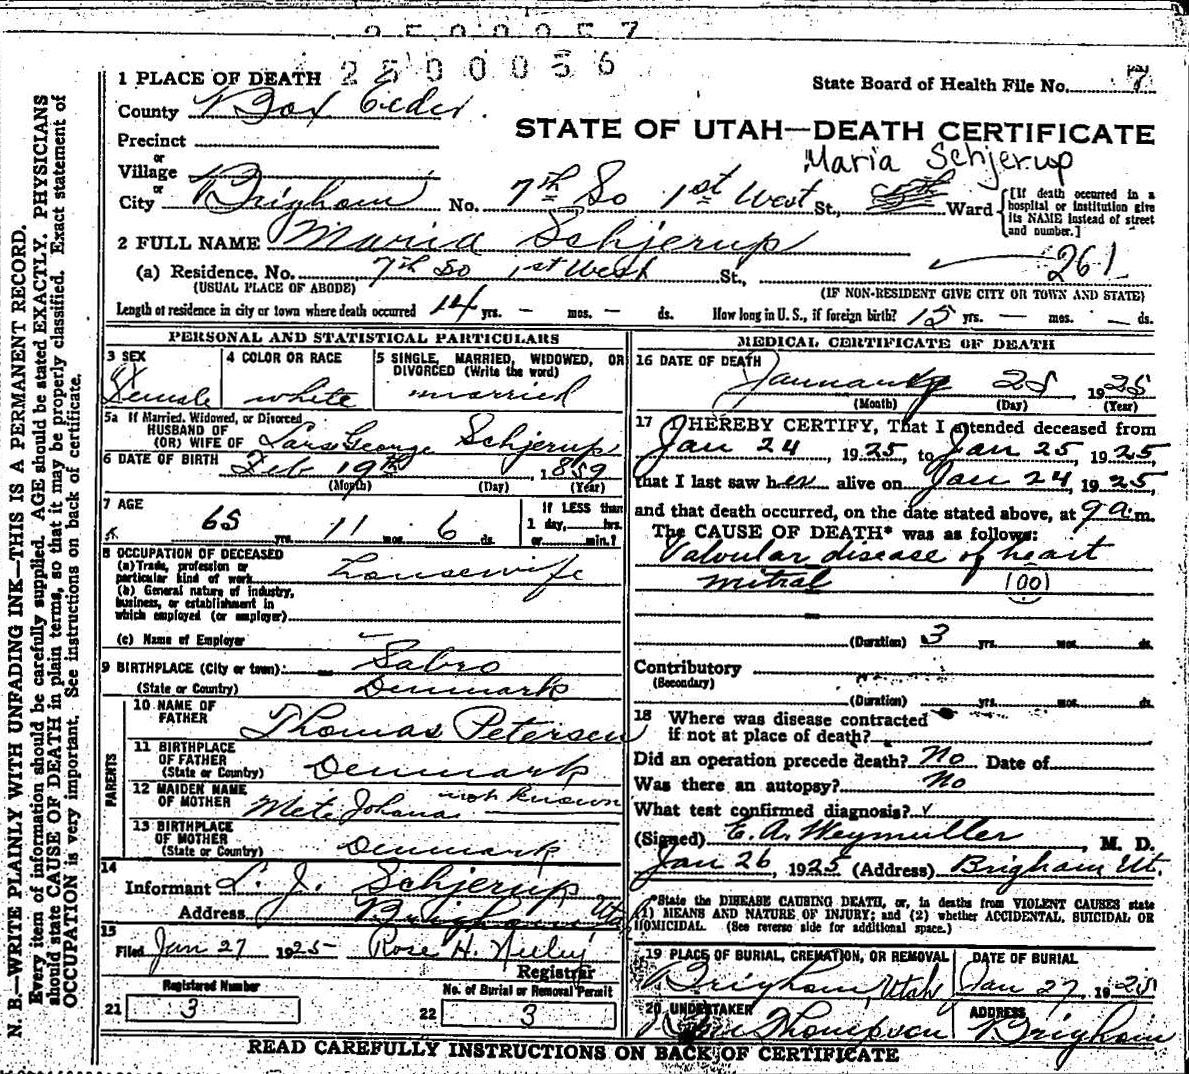 2500057
2500056
1 PLACE OF DEATH
State Board of Health File No. 7
County Box Elder.
STATE OF UTAH—DEATH CERTIFICATE
Precinct
Maria Schjerup
or
Village
or
City Brigham No. 7th So 1st West St., Ward
[If death occurred in a hospital or institution give its NAME instead of street and number.]
2 FULL NAME Maria Schjerup
261
(a) Residence. No. 7th So 1st West St.,
(USUAL PLACE OF ABODE)
(IF NON-RESIDENT GIVE CITY OR TOWN AND STATE)
Length of residence in city or town where death occurred 14 yrs. — mos. — ds. How long in U.S., if foreign birth? 15 yrs. — mos. — ds.
PERSONAL AND STATISTICAL PARTICULARS
3 SEX
Female
4 COLOR OR RACE
white
5 SINGLE, MARRIED, WIDOWED, OR DIVORCED (Write the word)
married
5a If Married, Widowed, or Divorced
HUSBAND OF
(OR) WIFE OF Lars George Schjerup
6 DATE OF BIRTH Feb 19th 1859
(Month) (Day) (Year)
7 AGE
65 yrs. 11 mos. 6 ds.
If LESS than
1 day, hrs.
or min.?
8 OCCUPATION OF DECEASED
(a) Trade, profession or
particular kind of work Housewife
(b) General nature of industry,
business, or establishment in
which employed (or employer)
(c) Name of Employer
9 BIRTHPLACE (City or town) Sabro
(State or Country) Denmark
PARENTS
10 NAME OF
FATHER Thomas Petersen
11 BIRTHPLACE
OF FATHER
(State or Country) Denmark
12 MAIDEN NAME
OF MOTHER Mete Johana not known
13 BIRTHPLACE
OF MOTHER
(State or Country) Denmark
14
Informant L. J. Schjerup
Address Brigham Utah
15
Filed Jan 27 1925 Rose H. Neeley
Registrar
Registered Number
21 3
No. of Burial or Removal Permit
22 3
MEDICAL CERTIFICATE OF DEATH
16 DATE OF DEATH
January 25 1925
(Month) (Day) (Year)
17 I HEREBY CERTIFY, That I attended deceased from
Jan 24, 1925, to Jan 25, 1925,
that I last saw her alive on Jan 24, 1925,
and that death occurred, on the date stated above, at 9 a.m.
The CAUSE OF DEATH* was as follows:
Valvular disease of heart
mitral (90)
(Duration) 3 yrs. mos. ds.
Contributory
(Secondary)
(Duration) yrs. mos. ds.
18 Where was disease contracted
if not at place of death?
Did an operation precede death? No Date of
Was there an autopsy? No
What test confirmed diagnosis?
(Signed) E. A. Weymuller, M. D.
Jan 26, 1925 (Address) Brigham Ut.
*State the DISEASE CAUSING DEATH, or, in deaths from VIOLENT CAUSES state
(1) MEANS AND NATURE OF INJURY; and (2) whether ACCIDENTAL, SUICIDAL OR
HOMICIDAL. (See reverse side for additional space.)
19 PLACE OF BURIAL, CREMATION, OR REMOVAL
Brigham, Utah
DATE OF BURIAL
Jan 27 1925
20 UNDERTAKER
Thompson
ADDRESS
Brigham
READ CAREFULLY INSTRUCTIONS ON BACK OF CERTIFICATE
N. B.—WRITE PLAINLY WITH UNFADING INK—THIS IS A PERMANENT RECORD.
Every item of information should be carefully supplied. AGE should be stated EXACTLY. PHYSICIANS
should state CAUSE OF DEATH in plain terms, so that it may be properly classified. Exact statement of
OCCUPATION is very important. See instructions on back of certificate.